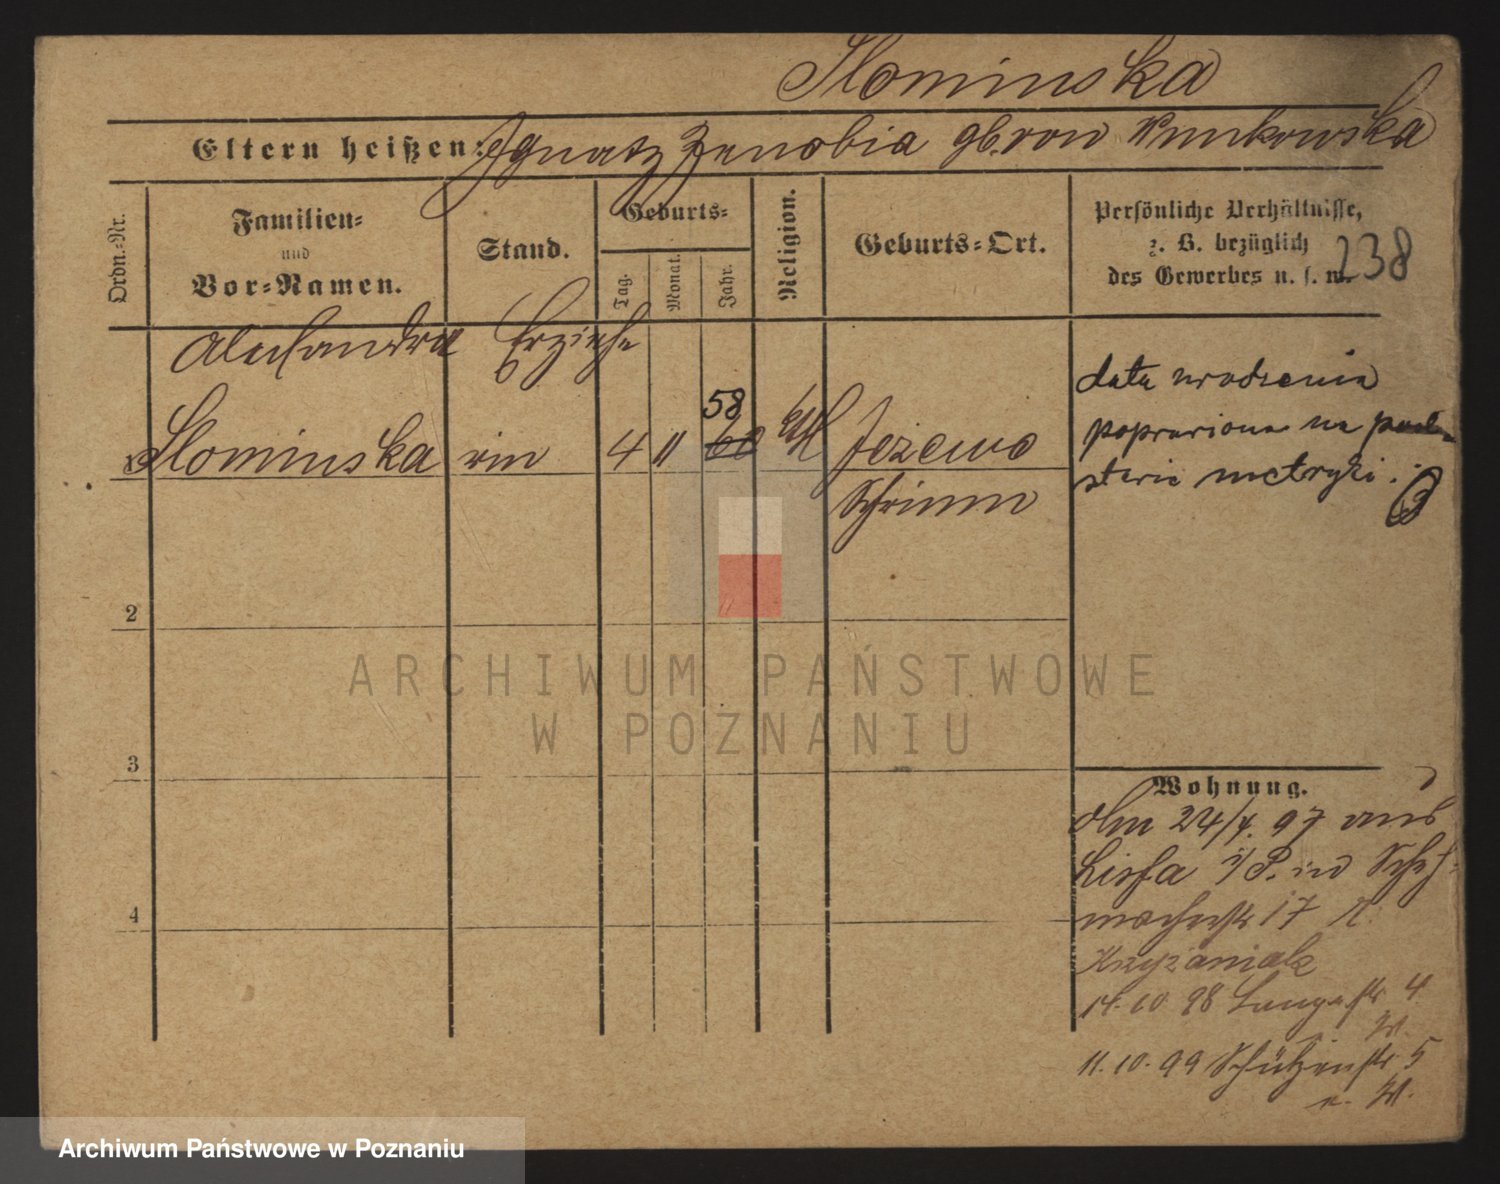 Slominska
Eltern heißen: Ignatz Zenobia gb. von
Ordn.-Nr.
Familien-
und
Vor-Namen.
Stand.
Geburts-
Tag.
Monat.
Jahr.
Religion.
Geburts-Ort.
Persönliche Verhältnisse,
z. B. bezüglich
des Gewerbes u. s. w.
238
Alexandra Erziehe
Slominska rin 4 11 58 60 kath Jezewo
Schrimm
data urodzenia
poprawiona na pod-
stawie metryki.
2
3
4
Wohnung.
Am 24/4. 97 aus
Lissa i/P. in Schuh-
macherstr 17
Krzyzaniak
14. 10 98 Langestr 4
W.
11. 10. 99 Schützenstr 5
W.
ARCHIWUM PAŃSTWOWE
W POZNANIU
Archiwum Państwowe w Poznaniu